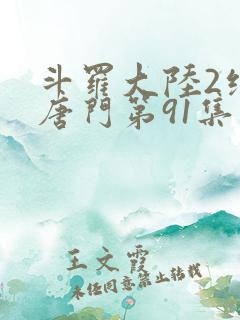 斗羅大陸2
唐門第91集
王文霞
未經同意禁止轉載